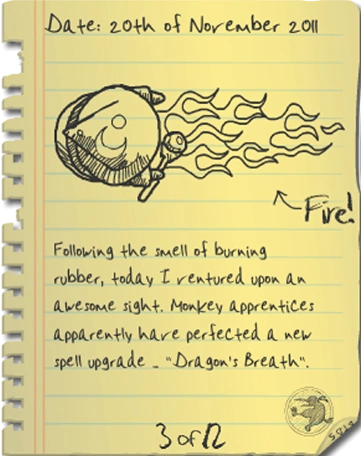 Date: 20th of November 2011
Fire!
Following the smell of burning
rubber, today I ventured upon an
awesome sight. Monkey apprentices
apparently have perfected a new
spell upgrade - "Dragon's Breath".
3 of 12